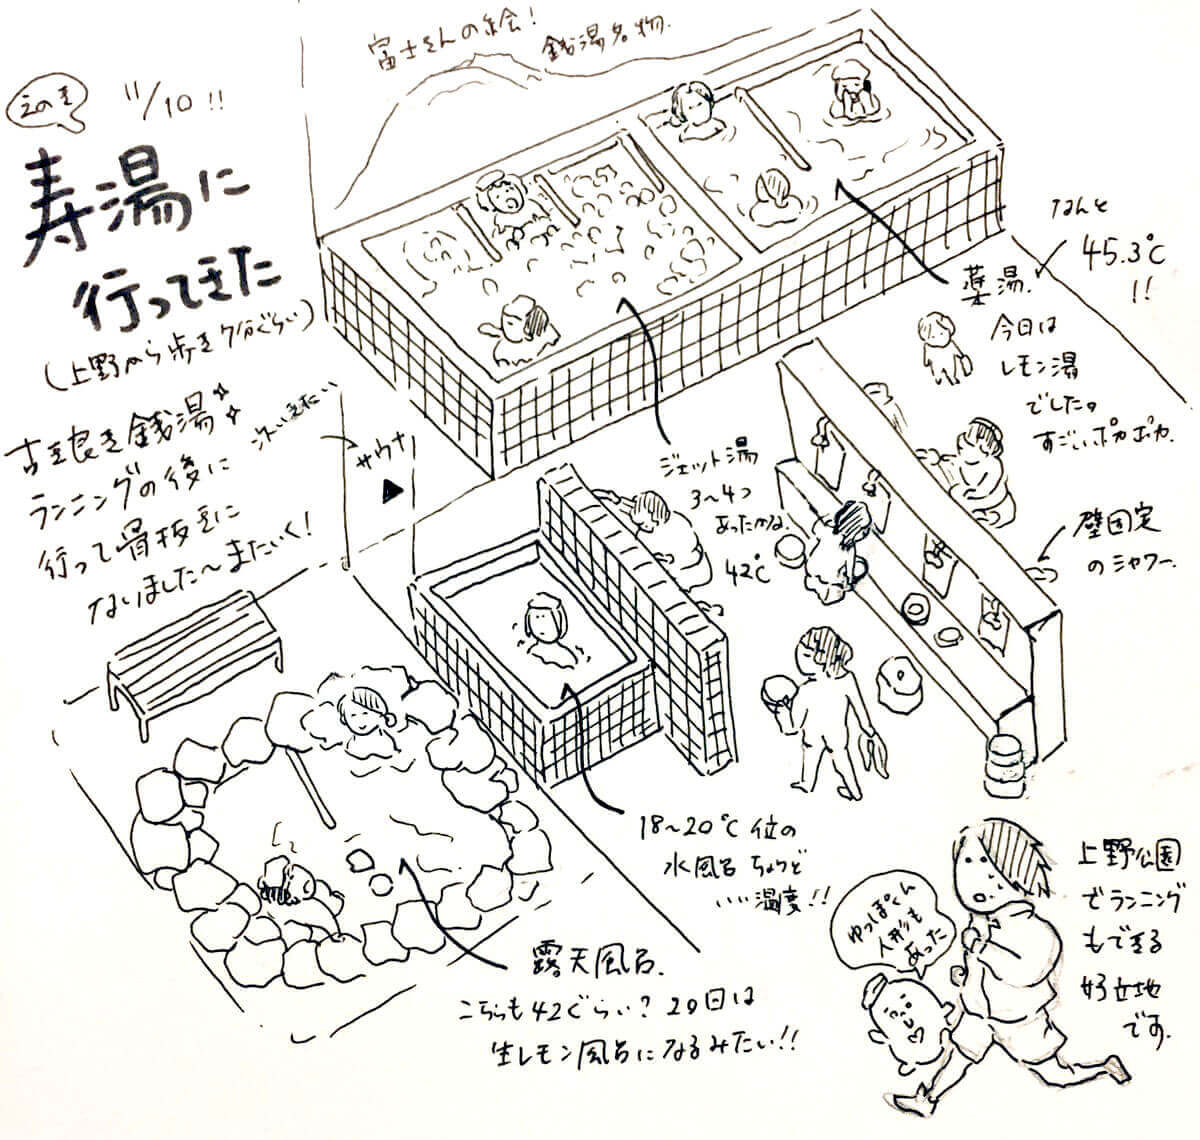 えのき
11/10!!
寿湯に
行ってきた
(上野から歩き7分ぐらい)
古き良き銭湯
ランニングの後に
行って骨抜きに
なりました〜またいく!
富士さんの絵!
銭湯名物.
次いきたい
サウナ
なんと
45.3℃
!!
薬湯.
今日は
レモン湯
でした。
すごいポカポカ.
ジェット湯
3〜4つ
あったかな.
42℃
壁固定
のシャワー.
18〜20℃位の
水風呂 ちょうど
いい温度!!
露天風呂.
こちらも42ぐらい?29日は
生レモン風呂になるみたい!!
ゆっぽくん
人形も
あった
上野公園
でランニング
もできる
好立地
です.